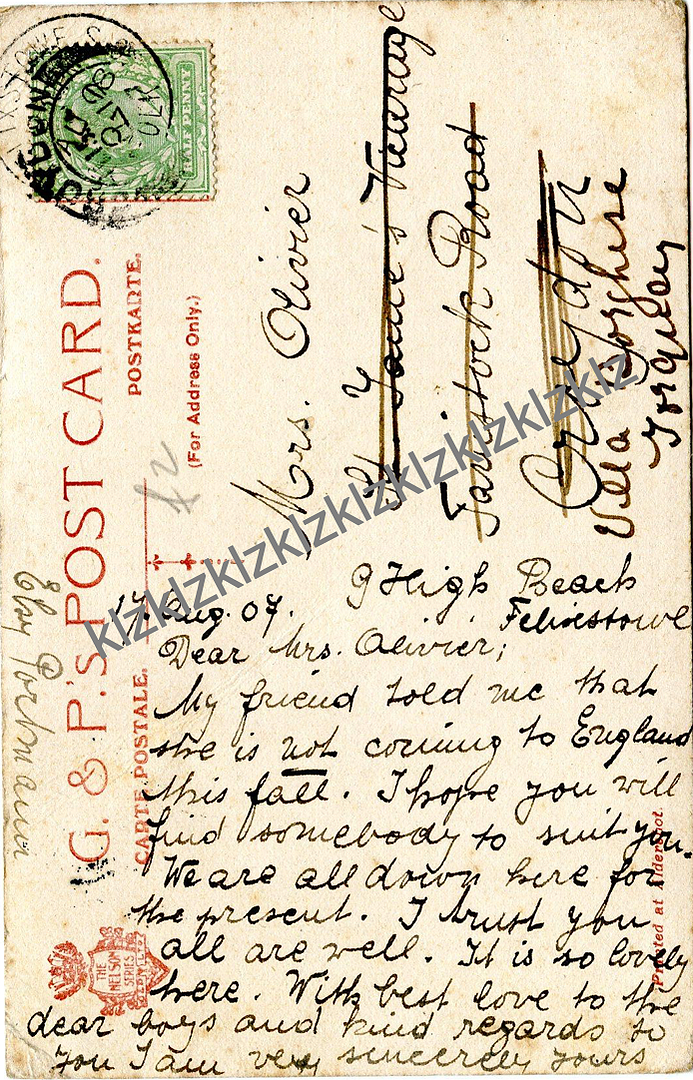 G. & P.'s POST CARD.
POSTKARTE.
CARTE POSTALE.
(For Address Only.)
HALF PENNY
THE NELSON SERIES
Printed at Aldershot.
£2
Mrs. Olivier
St. Jame's Vicarage
Tavistock Road
Croydon
Villa Borghese
Torquay
klzklzklzklzklzklzklzklzklzklz
9 High Beach
Felixstowe
17 Aug. 07.
Dear Mrs. Olivier;
My friend told me that
she is not coming to England
this fall. I hope you will
find somebody to suit you.
We are all down here for
the present. I trust you
all are well. It is so lovely
here. With best love to the
dear boys and kind regards to
you I am very sincerely yours
Portmann